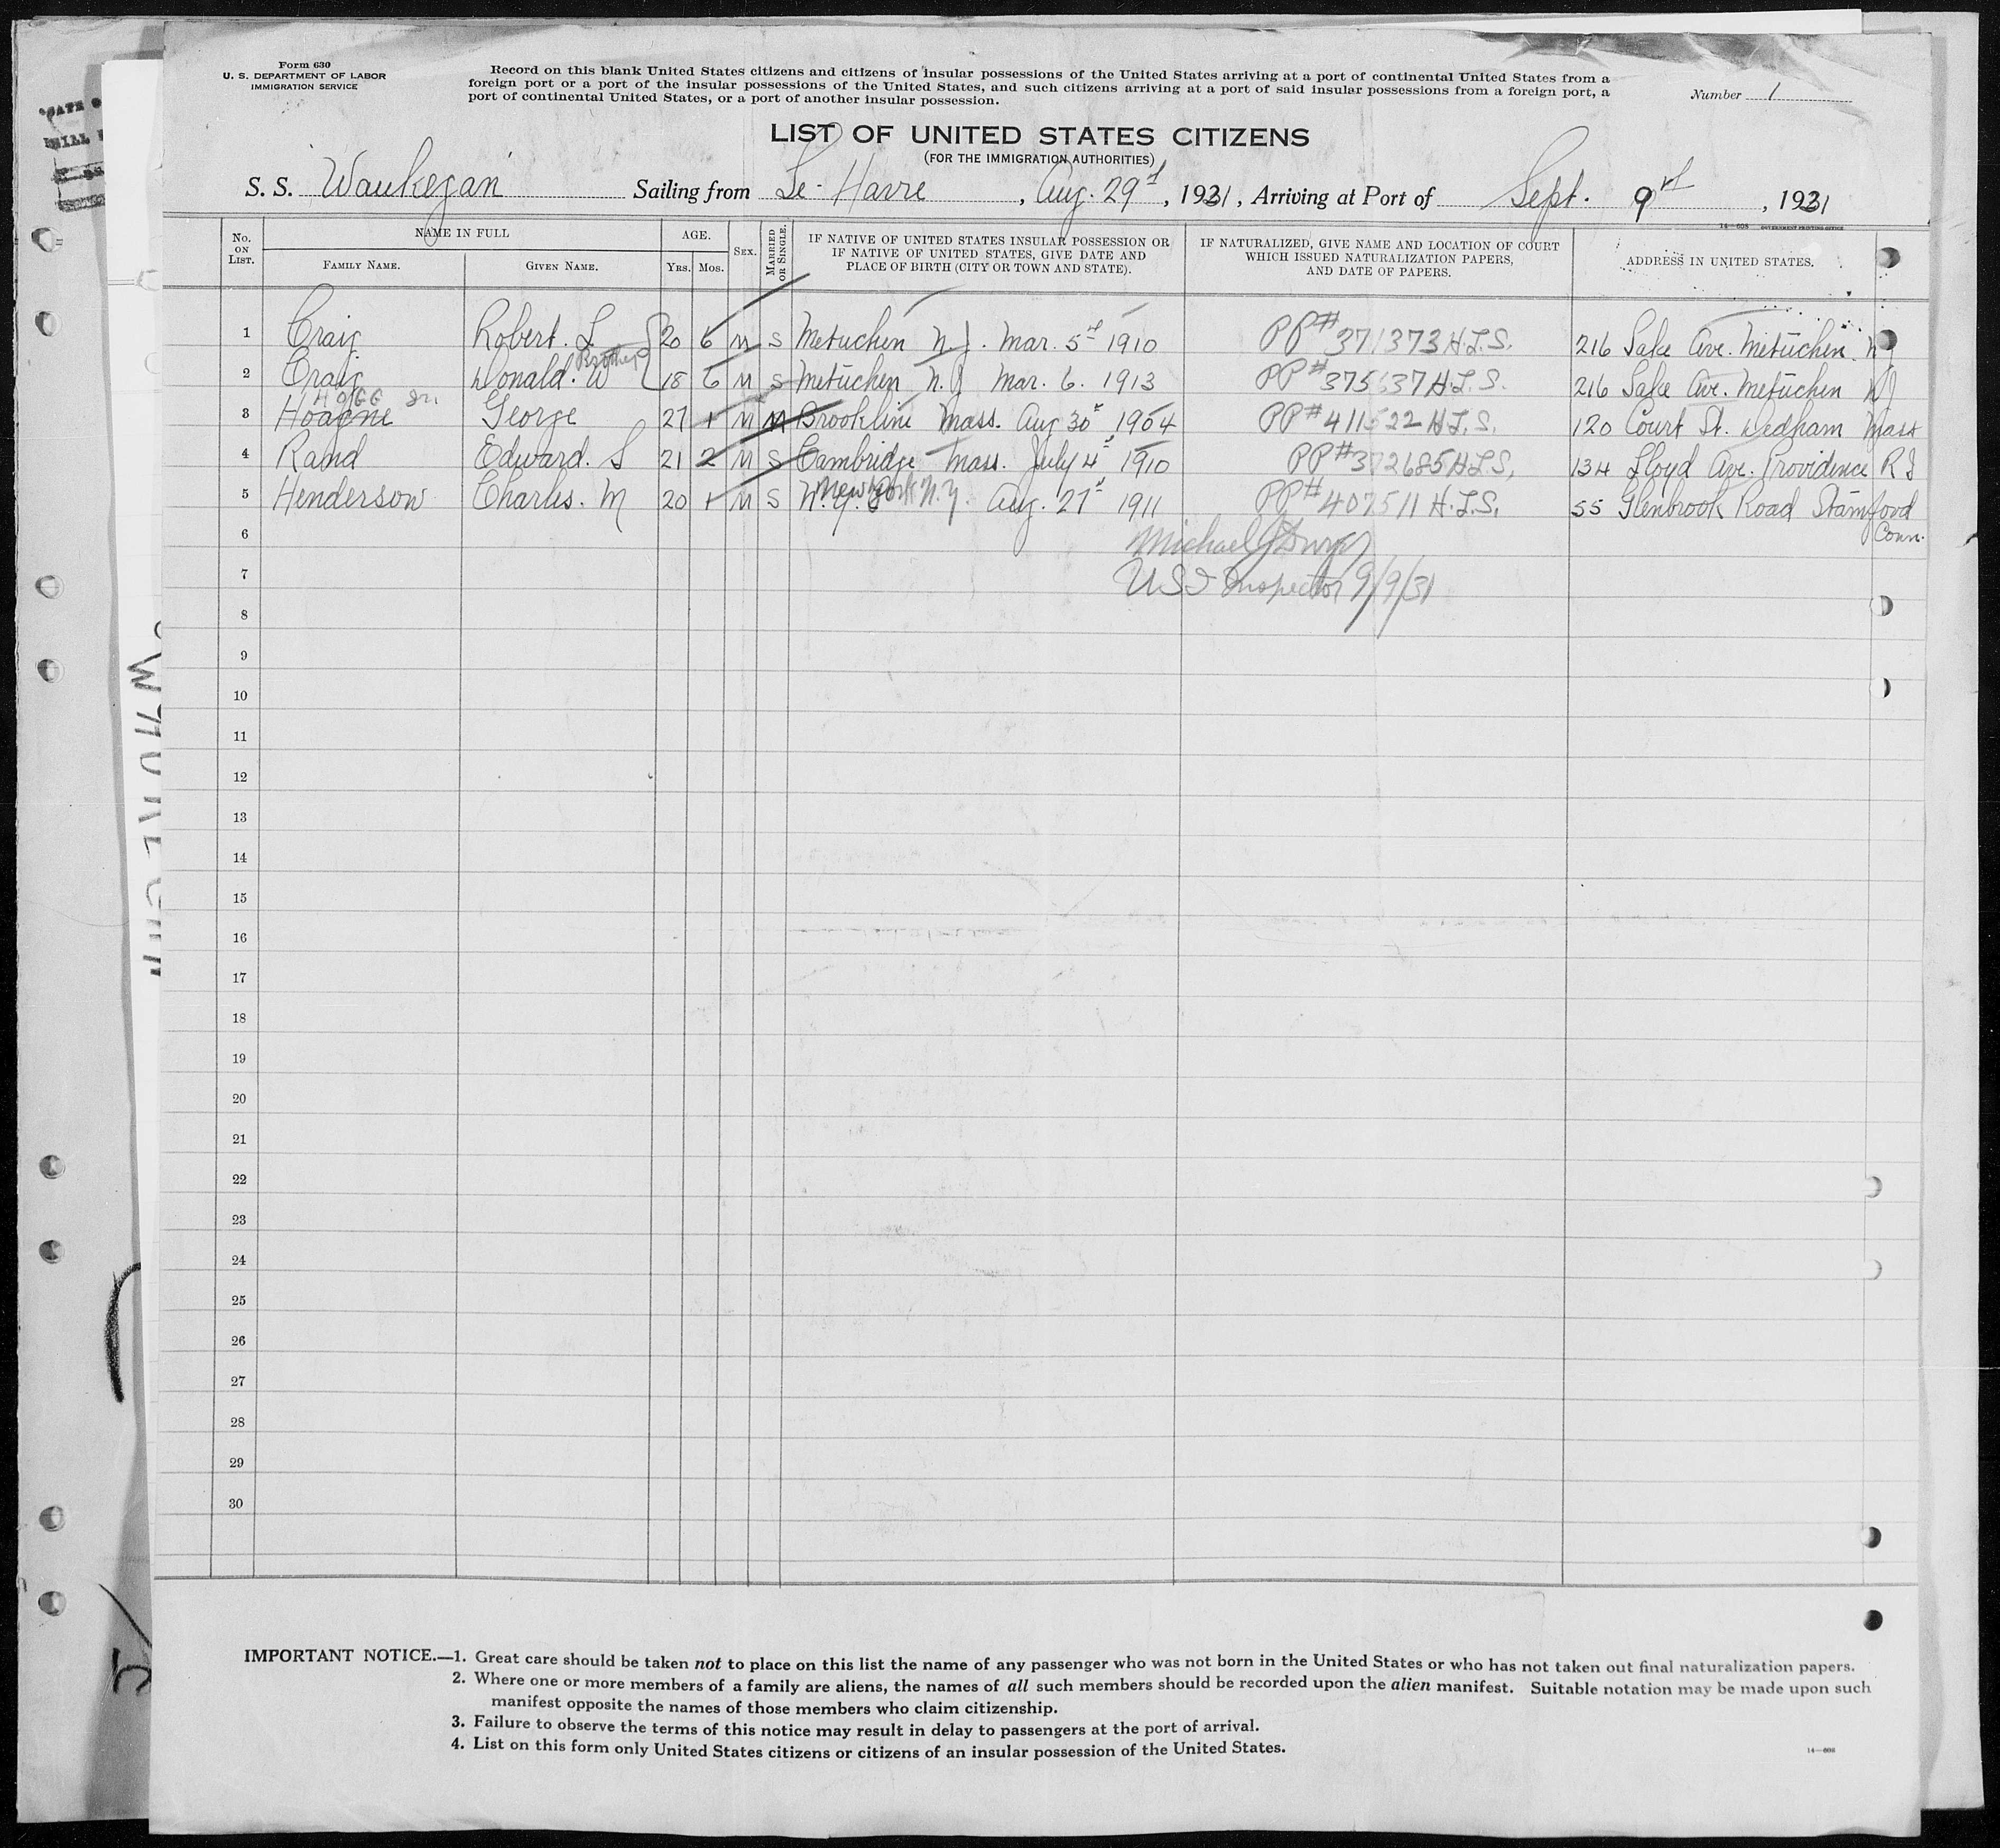 Form 630
U. S. DEPARTMENT OF LABOR
IMMIGRATION SERVICE
Record on this blank United States citizens and citizens of insular possessions of the United States arriving at a port of continental United States from a
foreign port or a port of the insular possessions of the United States, and such citizens arriving at a port of said insular possessions from a foreign port, a
port of continental United States, or a port of another insular possession.
Number 1
LIST OF UNITED STATES CITIZENS
(FOR THE IMMIGRATION AUTHORITIES)
S. S. Waukegan Sailing from Le-Havre, Aug. 29, 1931, Arriving at Port of Sept. 9, 1931
14—608 GOVERNMENT PRINTING OFFICE
No. ON LIST. NAME IN FULL AGE. SEX. MARRIED OR SINGLE. IF NATIVE OF UNITED STATES INSULAR POSSESSION OR IF NATIVE OF UNITED STATES, GIVE DATE AND PLACE OF BIRTH (CITY OR TOWN AND STATE). IF NATURALIZED, GIVE NAME AND LOCATION OF COURT WHICH ISSUED NATURALIZATION PAPERS, AND DATE OF PAPERS. ADDRESS IN UNITED STATES.
FAMILY NAME. GIVEN NAME. YRS. MOS.
1 Craig Robert. L 20 6 M S Metuchen N.J. Mar. 5 1910 PP# 371373 H.L.S. 216 Lake Ave. Metuchen. NJ
Brothers
2 Craig Donald. W 18 6 M S Metuchen N.J Mar. 6. 1913 PP# 375637 H.L.S. 216 Lake Ave. Metuchen NJ
HOGG Jr.
3 George 27 + M M Brookline Mass. Aug 30 1904 PP# 411522 H.L.S. 120 Court St. Dedham Mass
4 Rand Edward. S 21 2 M S Cambridge Mass. July 4 1910 PP# 372685 H.L.S. 134 Lloyd Ave. Providence R I
5 Henderson Charles. M 20 + M S N.Y. New York N.Y. Aug. 27 1911 PP# 407511 H.L.S. 55 Glenbrook Road Stamford
Conn.
6
Michael J
7
USI Inspector 9/9/31
8
9
10
11
12
13
14
15
16
17
18
19
20
21
22
23
24
25
26
27
28
29
30
IMPORTANT NOTICE.—1. Great care should be taken not to place on this list the name of any passenger who was not born in the United States or who has not taken out final naturalization papers.
2. Where one or more members of a family are aliens, the names of all such members should be recorded upon the alien manifest. Suitable notation may be made upon such
manifest opposite the names of those members who claim citizenship.
3. Failure to observe the terms of this notice may result in delay to passengers at the port of arrival.
4. List on this form only United States citizens or citizens of an insular possession of the United States.
14—608